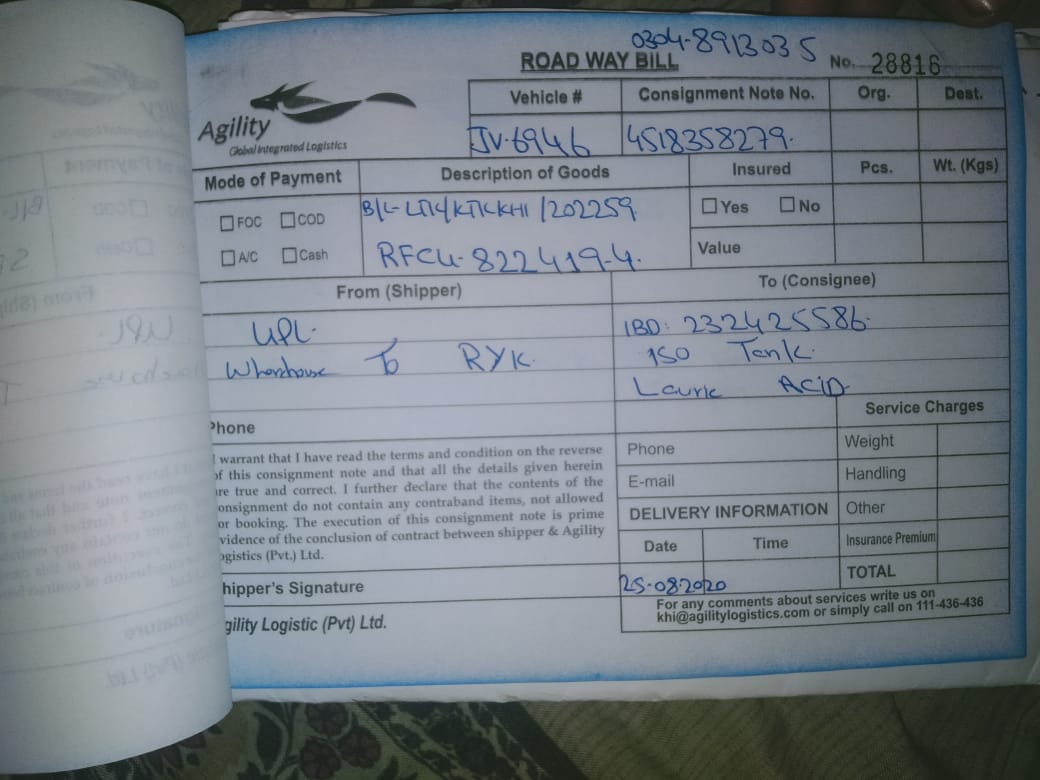 0304-8913035
ROAD WAY BILL No. 28816
Agility
Global Integrated Logistics
Vehicle # Consignment Note No. Org. Dest.
JV-6946 4518358279.
Mode of Payment Description of Goods Insured Pcs. Wt. (Kgs)
FOC COD
A/C Cash
202259
RFCU-822419-4.
Yes No
Value
From (Shipper) To (Consignee)
UPL.
To RYK.
IBD: 232425586.
ISO Tank.
Lauric ACiD.
Phone
I warrant that I have read the terms and condition on the reverse
of this consignment note and that all the details given herein
are true and correct. I further declare that the contents of the
consignment do not contain any contraband items, not allowed
for booking. The execution of this consignment note is prime
evidence of the conclusion of contract between shipper & Agility
Logistics (Pvt.) Ltd.
Shipper's Signature
Agility Logistic (Pvt) Ltd.
Phone
E-mail
DELIVERY INFORMATION
Date Time
25-08-2020
Service Charges
Weight
Handling
Other
Insurance Premium
TOTAL
For any comments about services write us on
khi@agilitylogistics.com or simply call on 111-436-436